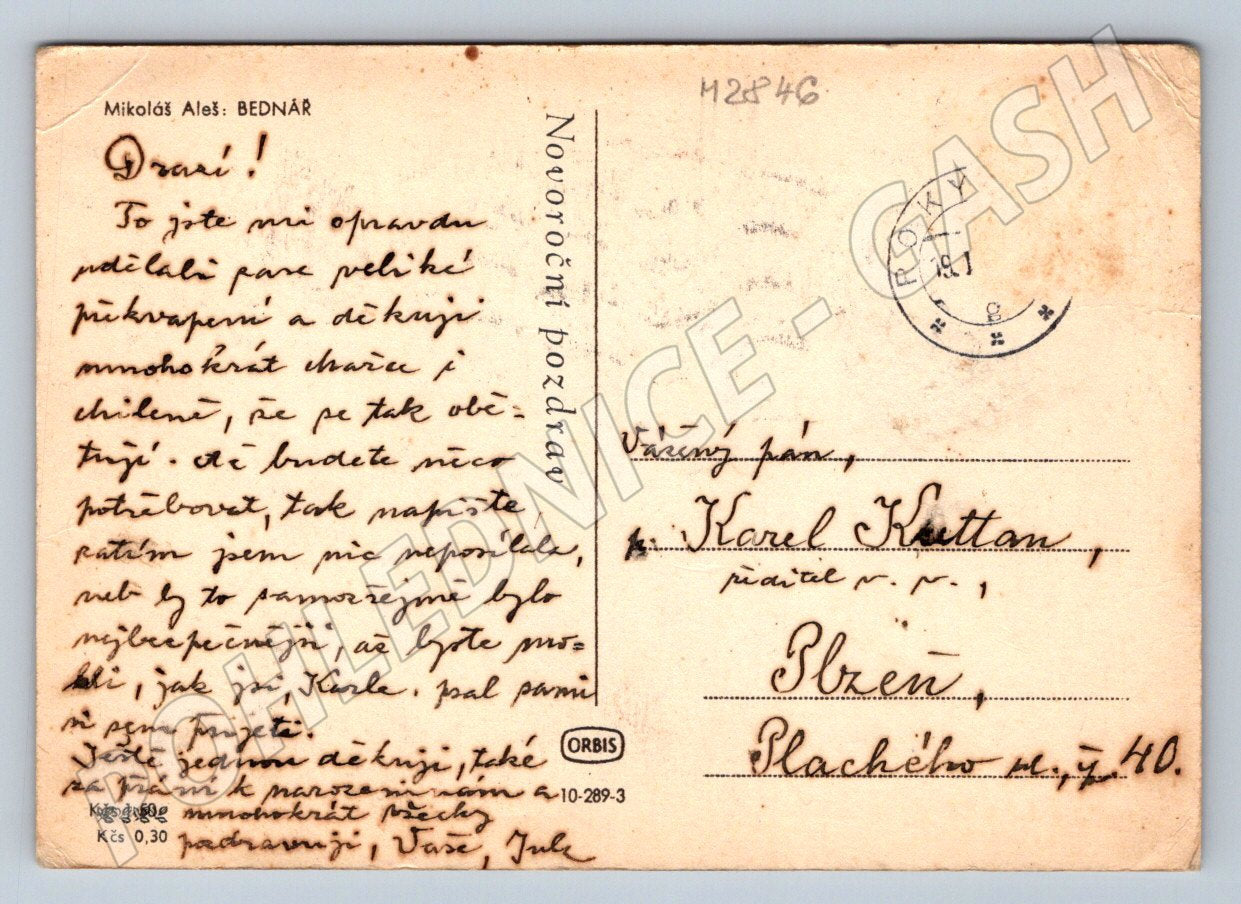 Mikoláš Aleš: BEDNÁŘ
M2846
Novoroční pozdrav
Drazí!
To jste mi opravdu
udělali zase veliké
překvapení a děkuji
mnohokrát Mařce i
chileně, že se tak obě-
tují. Až budete něco
potřebovat, tak napište,
zatím jsem nic neposílala,
neb by to samozřejmě bylo
nejbezpečnější, až byste mo-
hli, jak jsi, Karle psal sami
si sem přijeti.
Ještě jednou děkuji, také
za přání k narozeninám a
mnohokrát všecky
pozdravuji, Vaše, Jula
Kčs 0,30
ORBIS
10-289-3
ROKY
19.1
g
Vážený pán,
p. Karel Kuttan,
ředitel v. v.,
Plzeň,
Plachého ul., č. 40.
POHLEDNICE - CASH